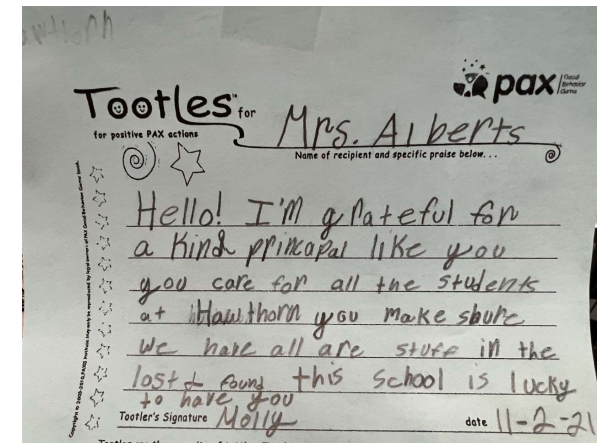 Tootles™ for
pax Good Behavior Game
for positive PAX actions
Mrs. Alberts
Name of recipient and specific praise below...
Hello! I'm grateful for
a kind princapal like you
you care for all the students
at Hawthorn you make shure
we have all are stuff in the
lost & found this school is lucky
to have you
Tootler's Signature Molly date 11-2-21